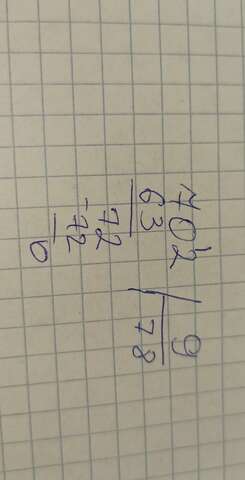 702 9
63 78
72
-72
0